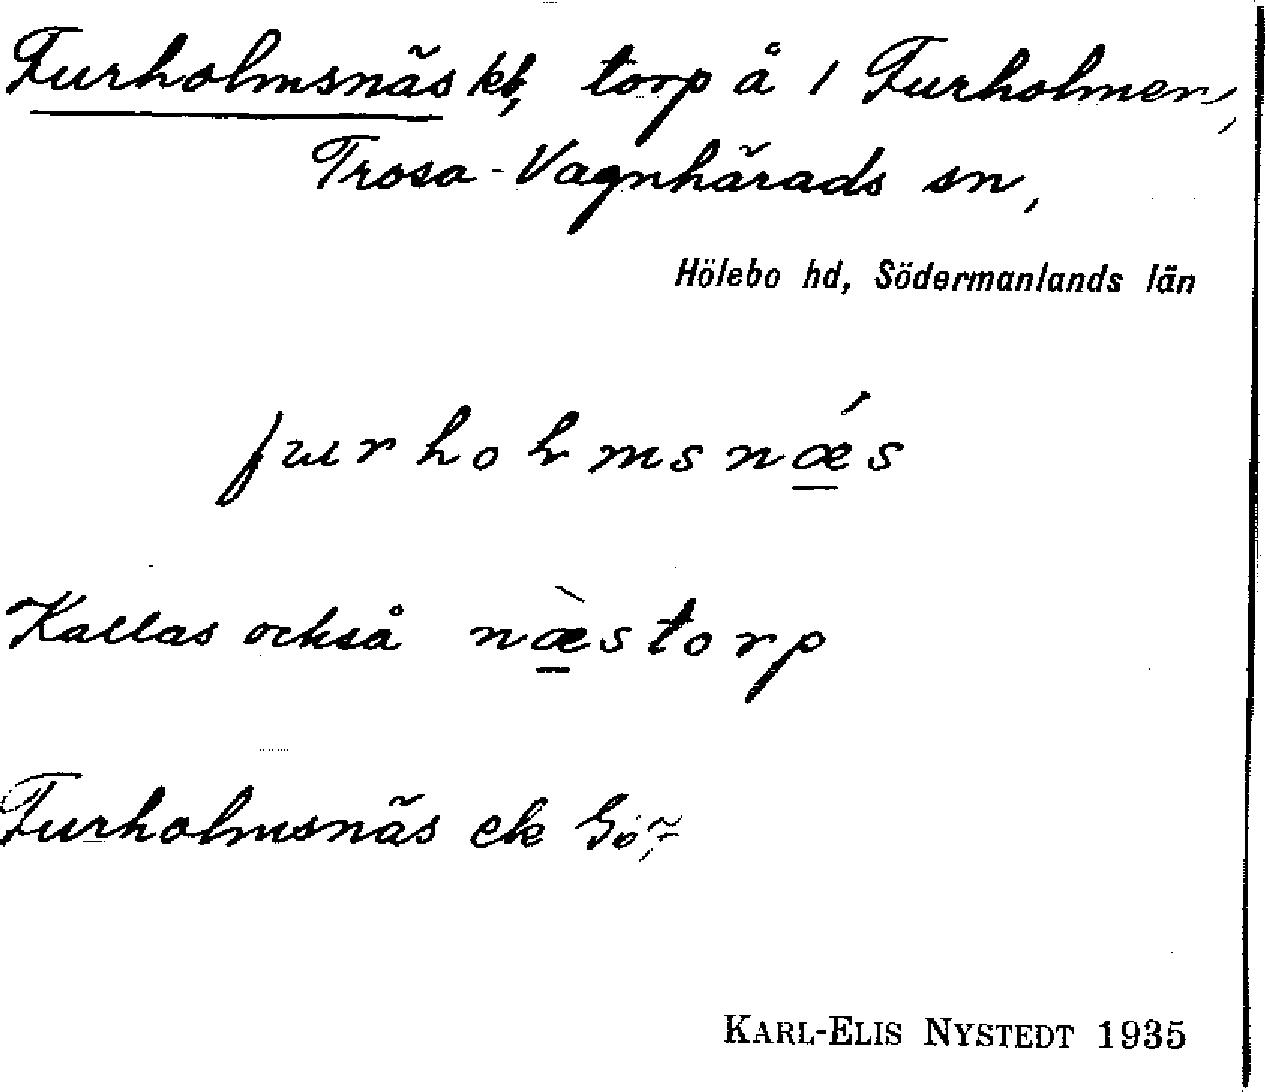 Furholmsnäs kb, torp å 1 Furholmen,
Trosa-Vagnhärads sn,
Hölebo hd, Södermanlands län
furholmsnǽ̲s
Kallas också næ̲̀storp
Furholmsnäs ek
KARL-ELIS NYSTEDT 1935